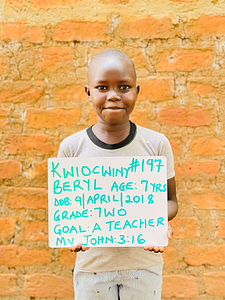 KWIOCWINY #197
BERYL AGE: 7YRS
DOB: 9/APRIL/2018
GRADE: TWO
GOAL: A TEACHER
MV JOHN: 3:16